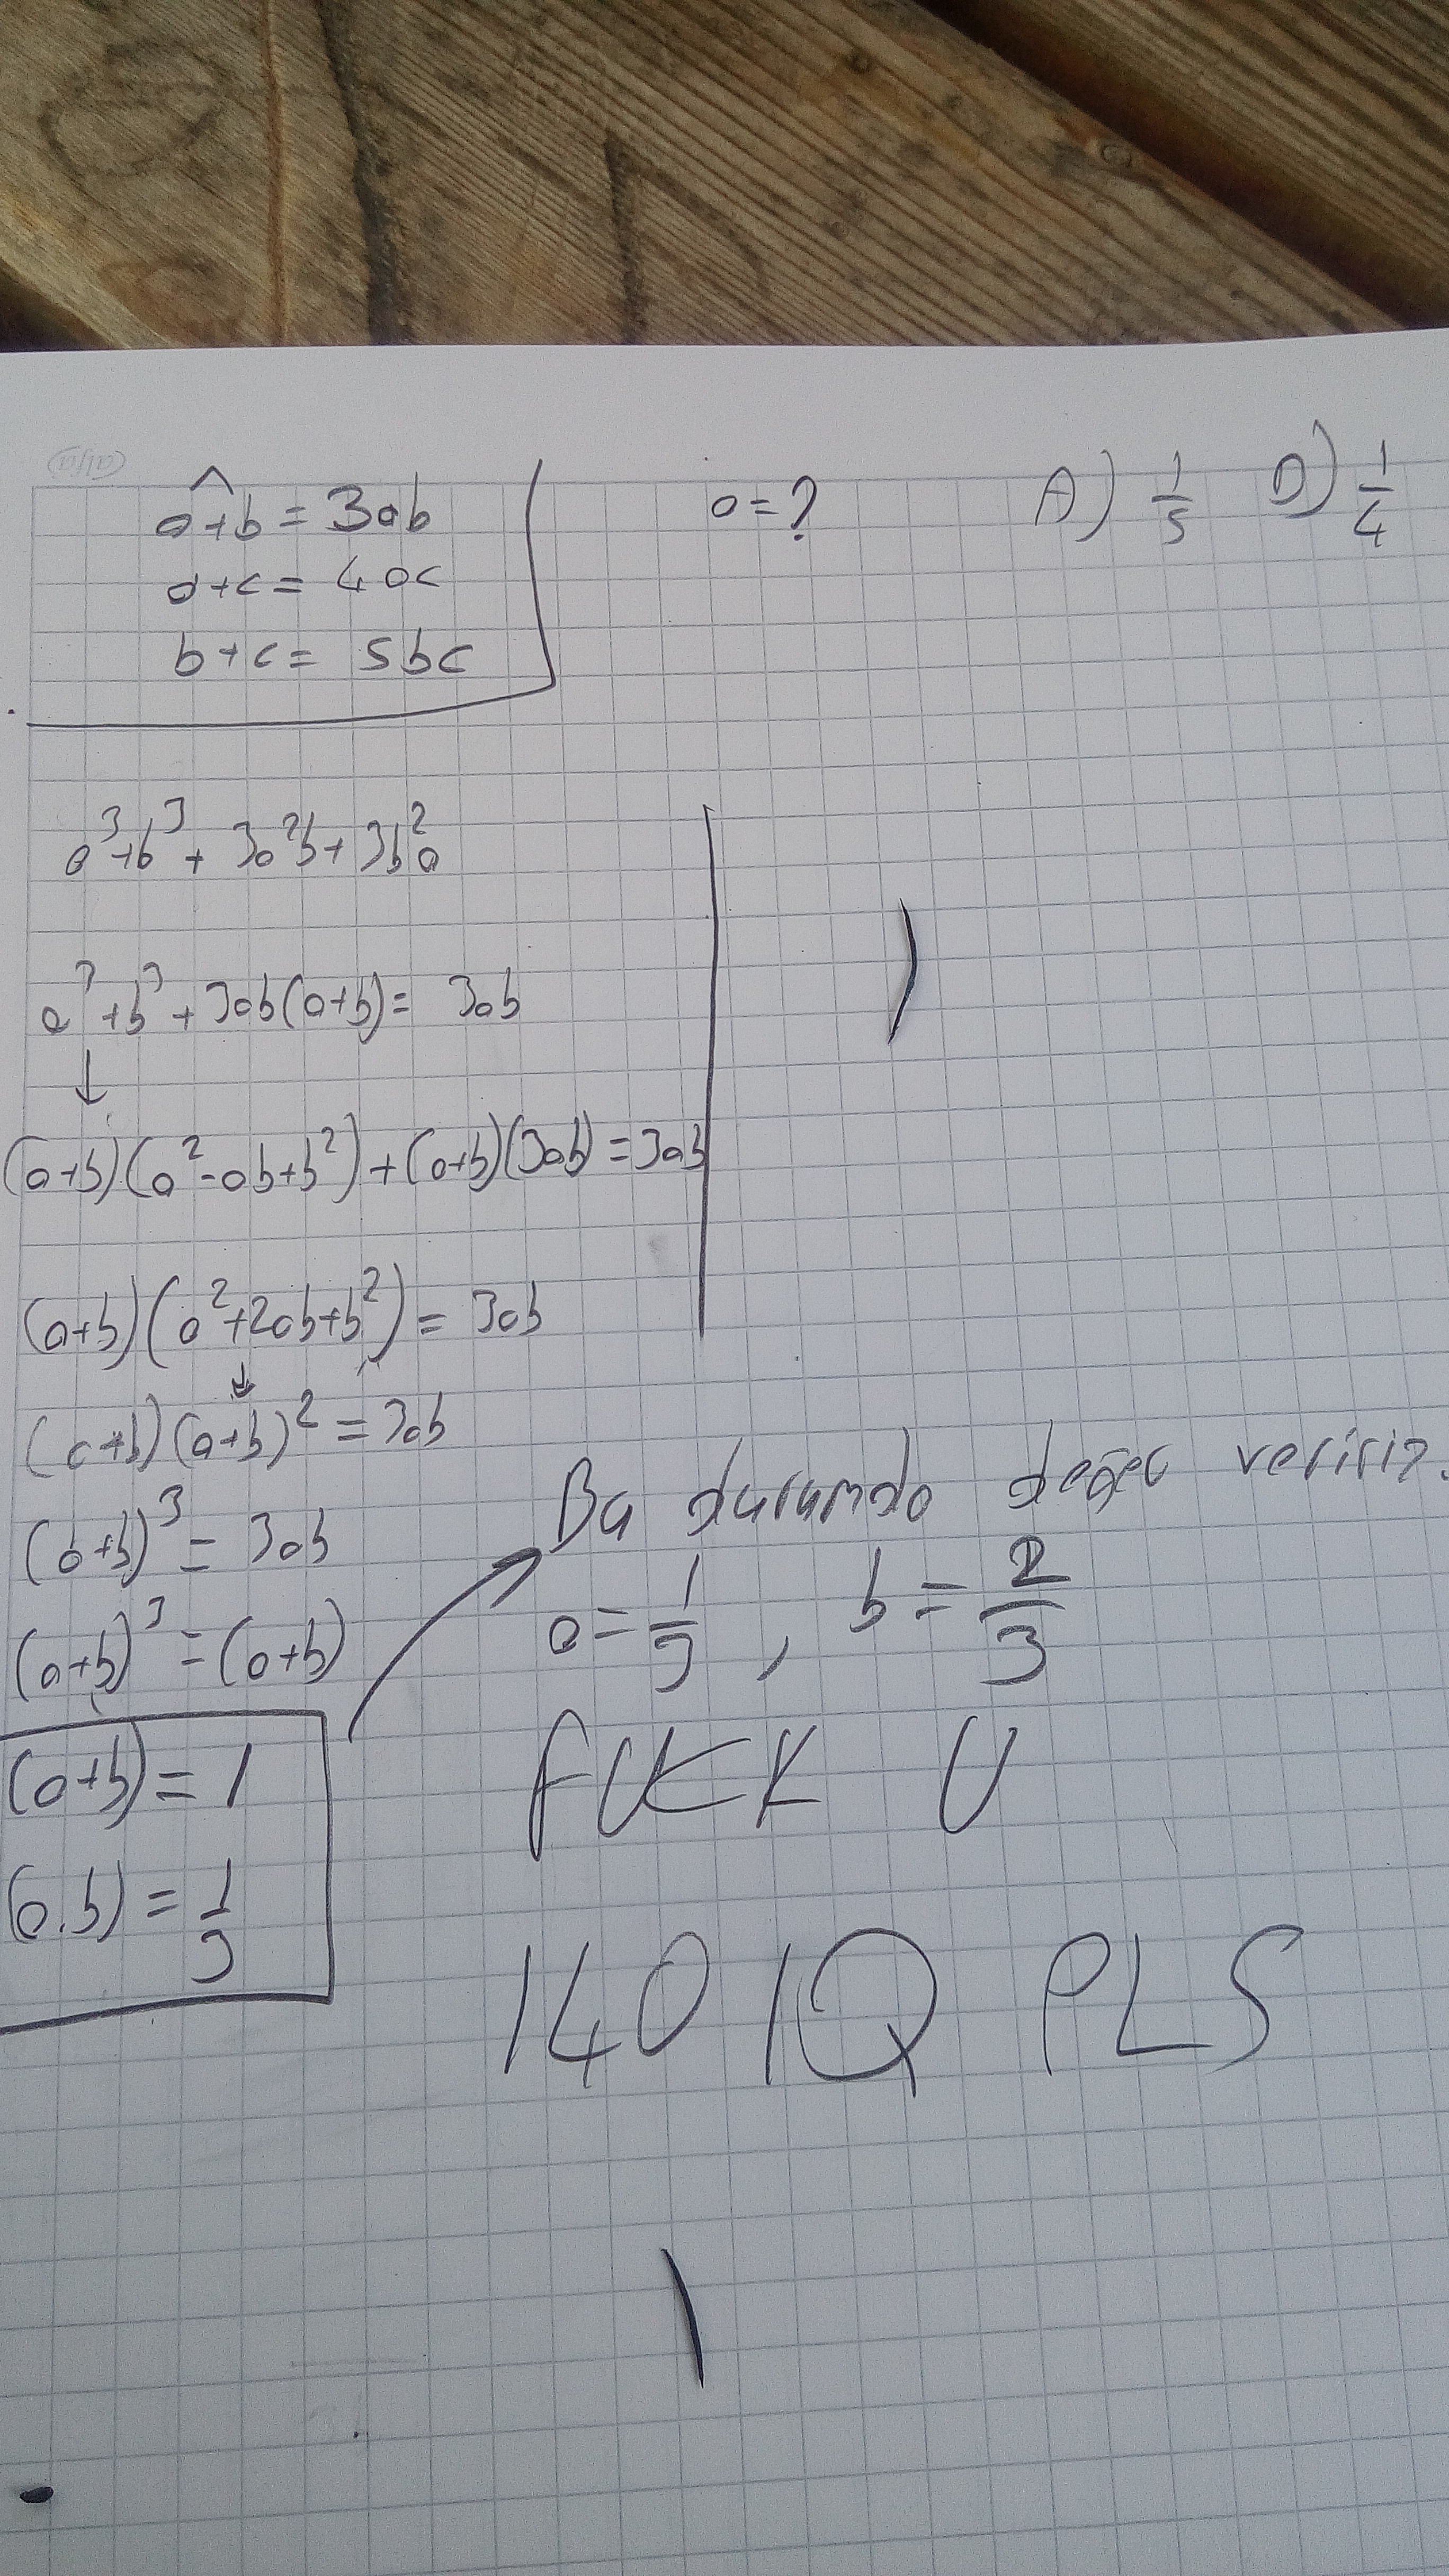 a+b = 3ab
a+c = 4ac
b+c = 5bc
a=?
A) 1/5 D) 1/4
a³+b³+3a²b+3b²a
a³+b³+3ab(a+b)= 3ab
(a+b)(a²-ab+b²)+(a+b)(3ab)=3ab
(a+b)(a²+2ab+b²)= 3ab
(a+b)(a+b)²=3ab
(a+b)³= 3ab
(a+b)³=(a+b)
(a+b)=1
(a.b)=1/3
Bu durumda değer veririz.
a=1/3, b=2/3
FUCK U
140 IQ PLS